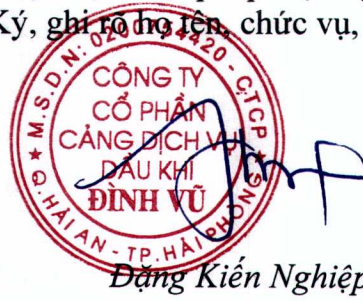 Ký, ghi rõ họ tên, chức vụ,
M.S.D.N: 0200754420 - C.T.C.P
CÔNG TY
CỔ PHẦN
CẢNG DỊCH VỤ
DẦU KHÍ
ĐÌNH VŨ
Q. HẢI AN - TP. HẢI PHÒNG
Đặng Kiến Nghiệp